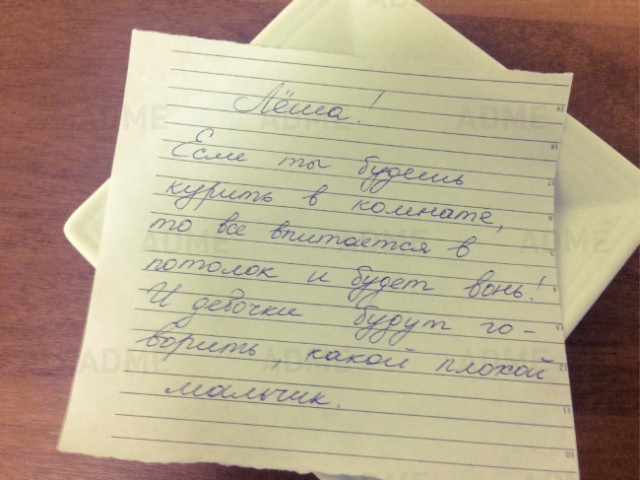 Лёша!
Если ты будешь
курить в комнате,
то все впитается в
потолок и будет вонь!
И девочки будут го-
ворить, какой плохой
мальчик.
ADME
ADME
ADME
ADME
ADME
ADME
ADME
ADME